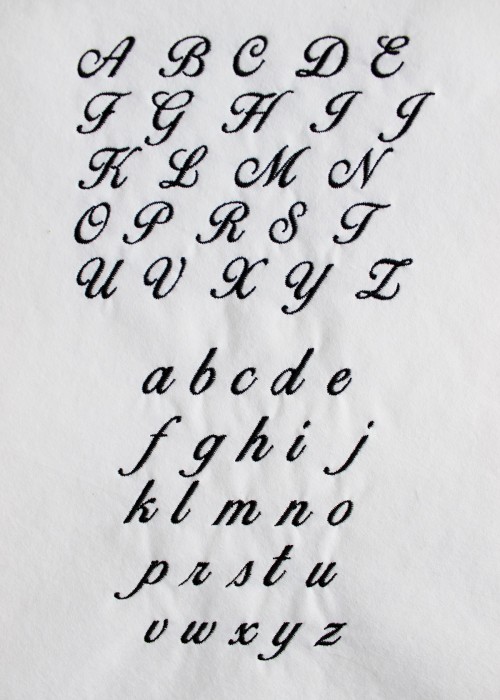 A B C D E
F G H I J
K L M N
O P R S T
U V X Y Z
a b c d e
f g h i j
k l m n o
p r s t u
v w x y z